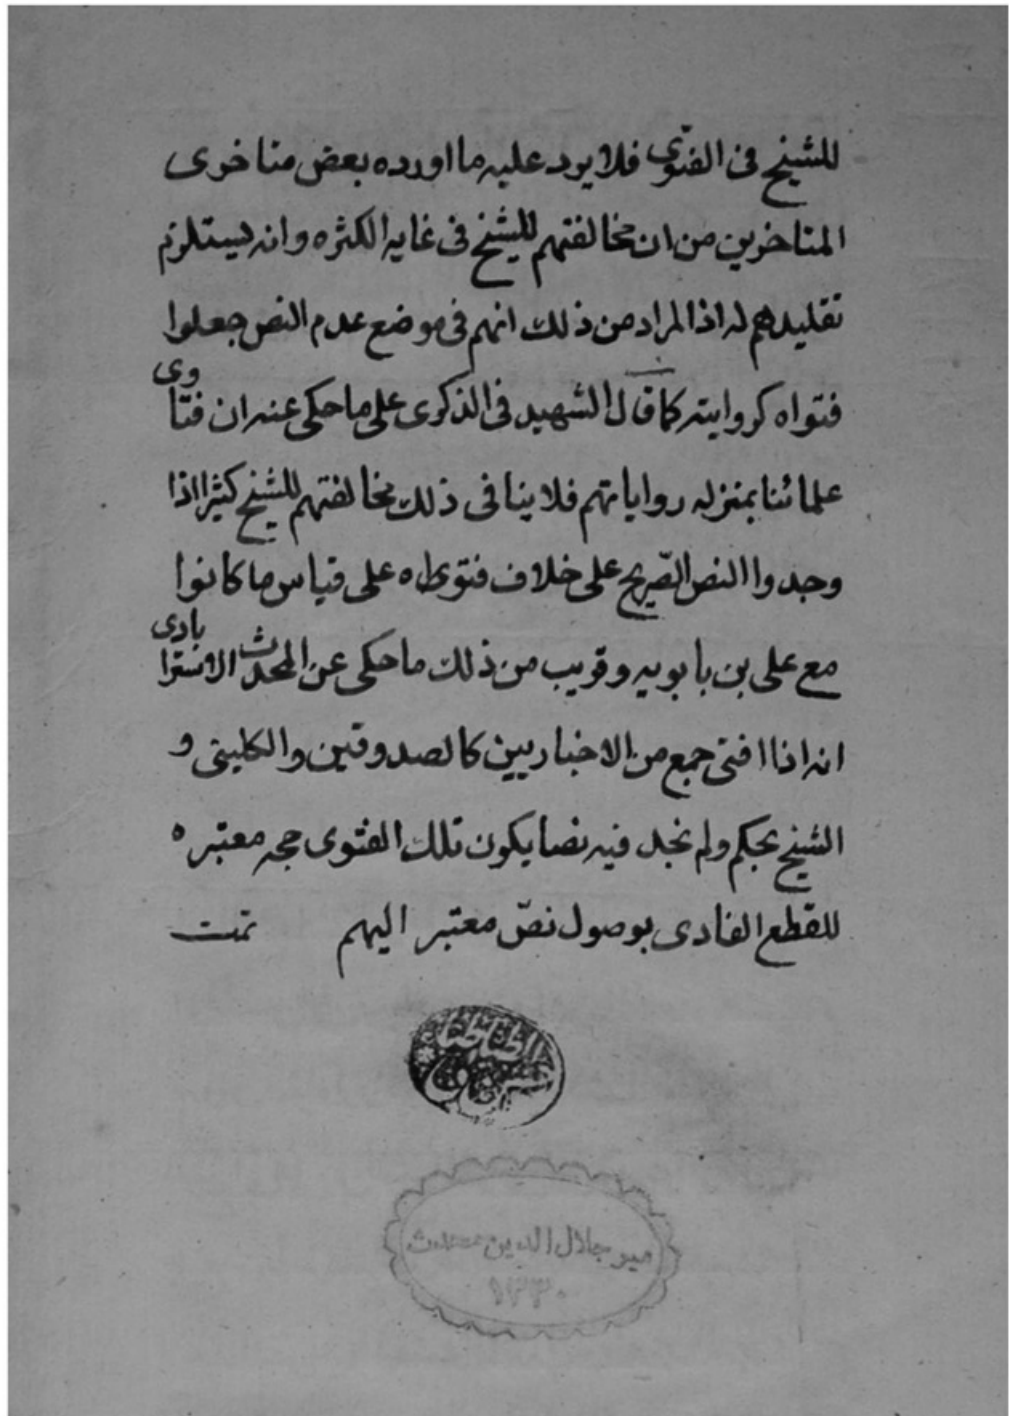 للشيخ فى الفتوى فلا يرد عليه ما اورده بعض متاخرى
المتاخرين من ان مخالفتهم للشيخ فى غايه الكثره وانه يستلزم
تقليدهم له اذا المراد من ذلك انهم فى موضع عدم النص جعلوا
فتواه كروايته كما قال الشهيد فى الذكرى على ما حكى عنه ان فتاوى
علمائنا بمنزله رواياتهم فلا ينافى ذلك مخالفتهم للشيخ كثيرا اذا
وجدوا النص الصّريح على خلاف فتواه على قياس ما كانوا
مع على بن بابويه وقريب من ذلك ما حكى عن المحدث الاسترابادى
انه اذا افتى جمع من الاخباريين كالصدوقين والكلينى و
الشيخ بحكم ولم نجد فيه نصا يكون تلك الفتوى حجه معتبره
للقطع العادى بوصول نصّ معتبر اليهم تمت
الطباطبا
مير جلال الدين محدث